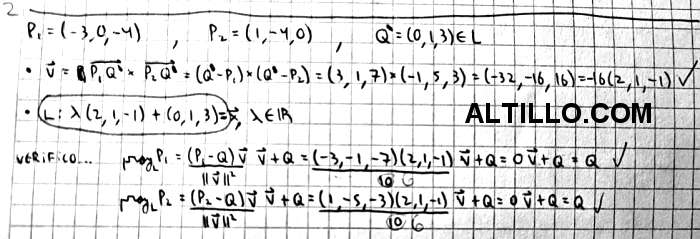 2
P₁ = (-3,0,-4) , P₂ = (1,-4,0) , Q = (0,1,3) ∈ L
• v⃗ = P₁Q × P₂Q = (Q-P₁) × (Q-P₂) = (3,1,7) × (-1,5,3) = (-32,-16,16) = -16(2,1,-1) ✓
• L: λ(2,1,-1) + (0,1,3) = x⃗, λ∈ℝ
ALTILLO.COM
VERIFICO... proy_L P₁ = (P₁-Q)v⃗ / ||v⃗||² v⃗ + Q = (-3,-1,-7)(2,1,-1) / 6 v⃗ + Q = 0v⃗ + Q = Q ✓
proy_L P₂ = (P₂-Q)v⃗ / ||v⃗||² v⃗ + Q = (1,-5,-3)(2,1,-1) / 6 v⃗ + Q = 0v⃗ + Q = Q ✓